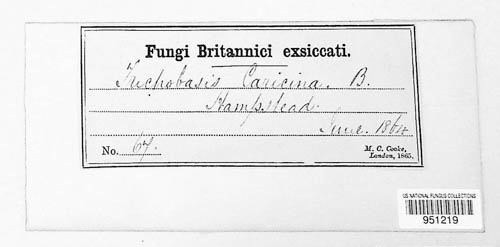 Fungi Britannici exsiccati.
Trichobasis Caricina. B.
Hampstead.
June. 1864
No. 67.
M. C. Cooke,
London, 1865.
US NATIONAL FUNGUS COLLECTIONS
951219